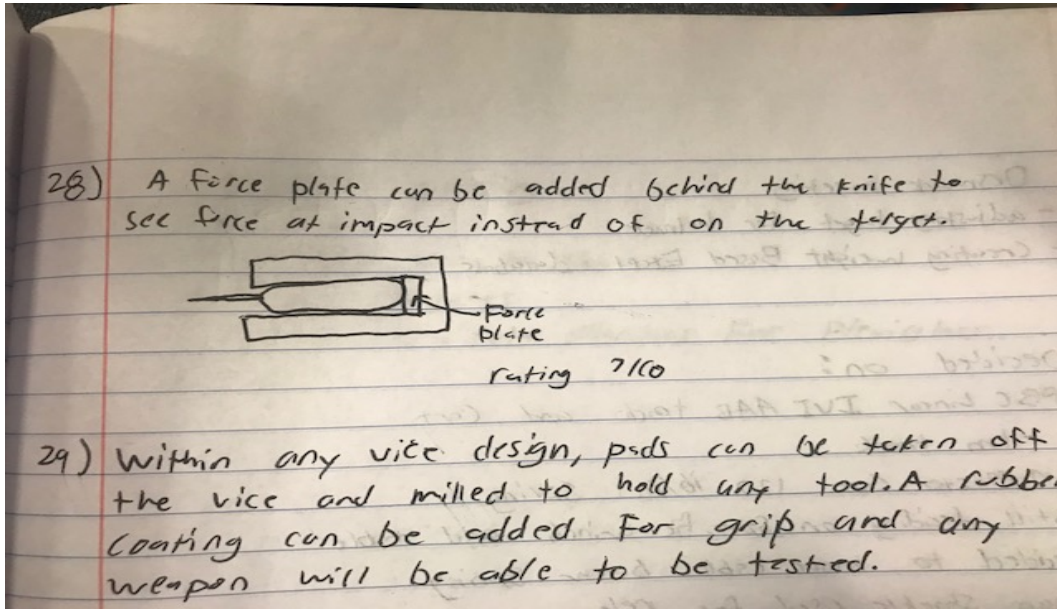 28) A force plate can be added behind the knife to
see force at impact instead of on the target.
Force
plate
rating 7/10
29) Within any vice design, pads can be taken off
the vice and milled to hold any tool. A rubber
coating can be added for grip and any
weapon will be able to be tested.